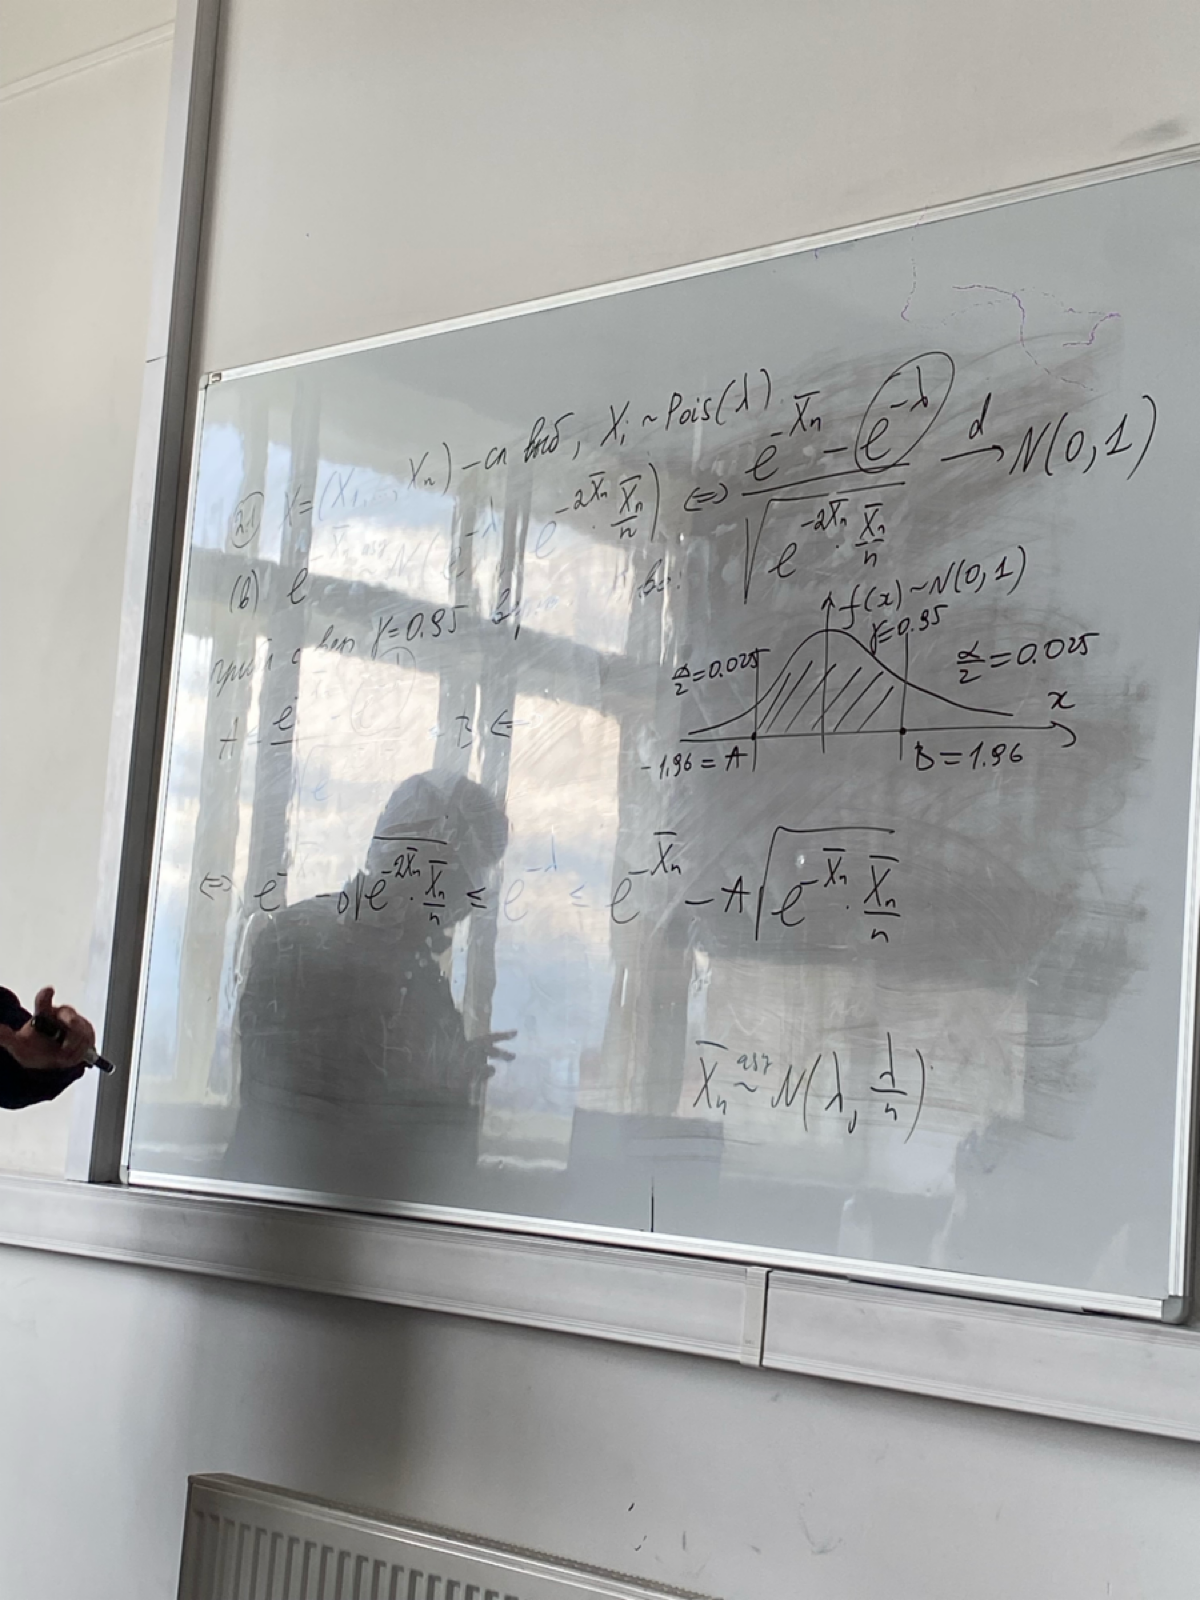 2.1 X = (X₁, ..., Xₙ) – сл выб, Xᵢ ~ Pois(λ).
(b) e^{-X̄ₙ} ~^{asy} N(e^{-λ}, e^{-2X̄ₙ} · X̄ₙ/n) ⇔ (e^{-X̄ₙ} – e^{-λ}) / √(e^{-2X̄ₙ} · X̄ₙ/n) →^{d} N(0,1)
γ=0.95
f(x) ~ N(0,1)
γ=0.95
α/2=0.025
α/2=0.025
x
-1,96 = A
B = 1.96
⇔ e^{-X̄ₙ} – √(e^{-2X̄ₙ} · X̄ₙ/n) ≤ e^{-λ} ≤ e^{-X̄ₙ} – A√(e^{-X̄ₙ} · X̄ₙ/n)
X̄ₙ ~^{asy} N(λ, λ/n)